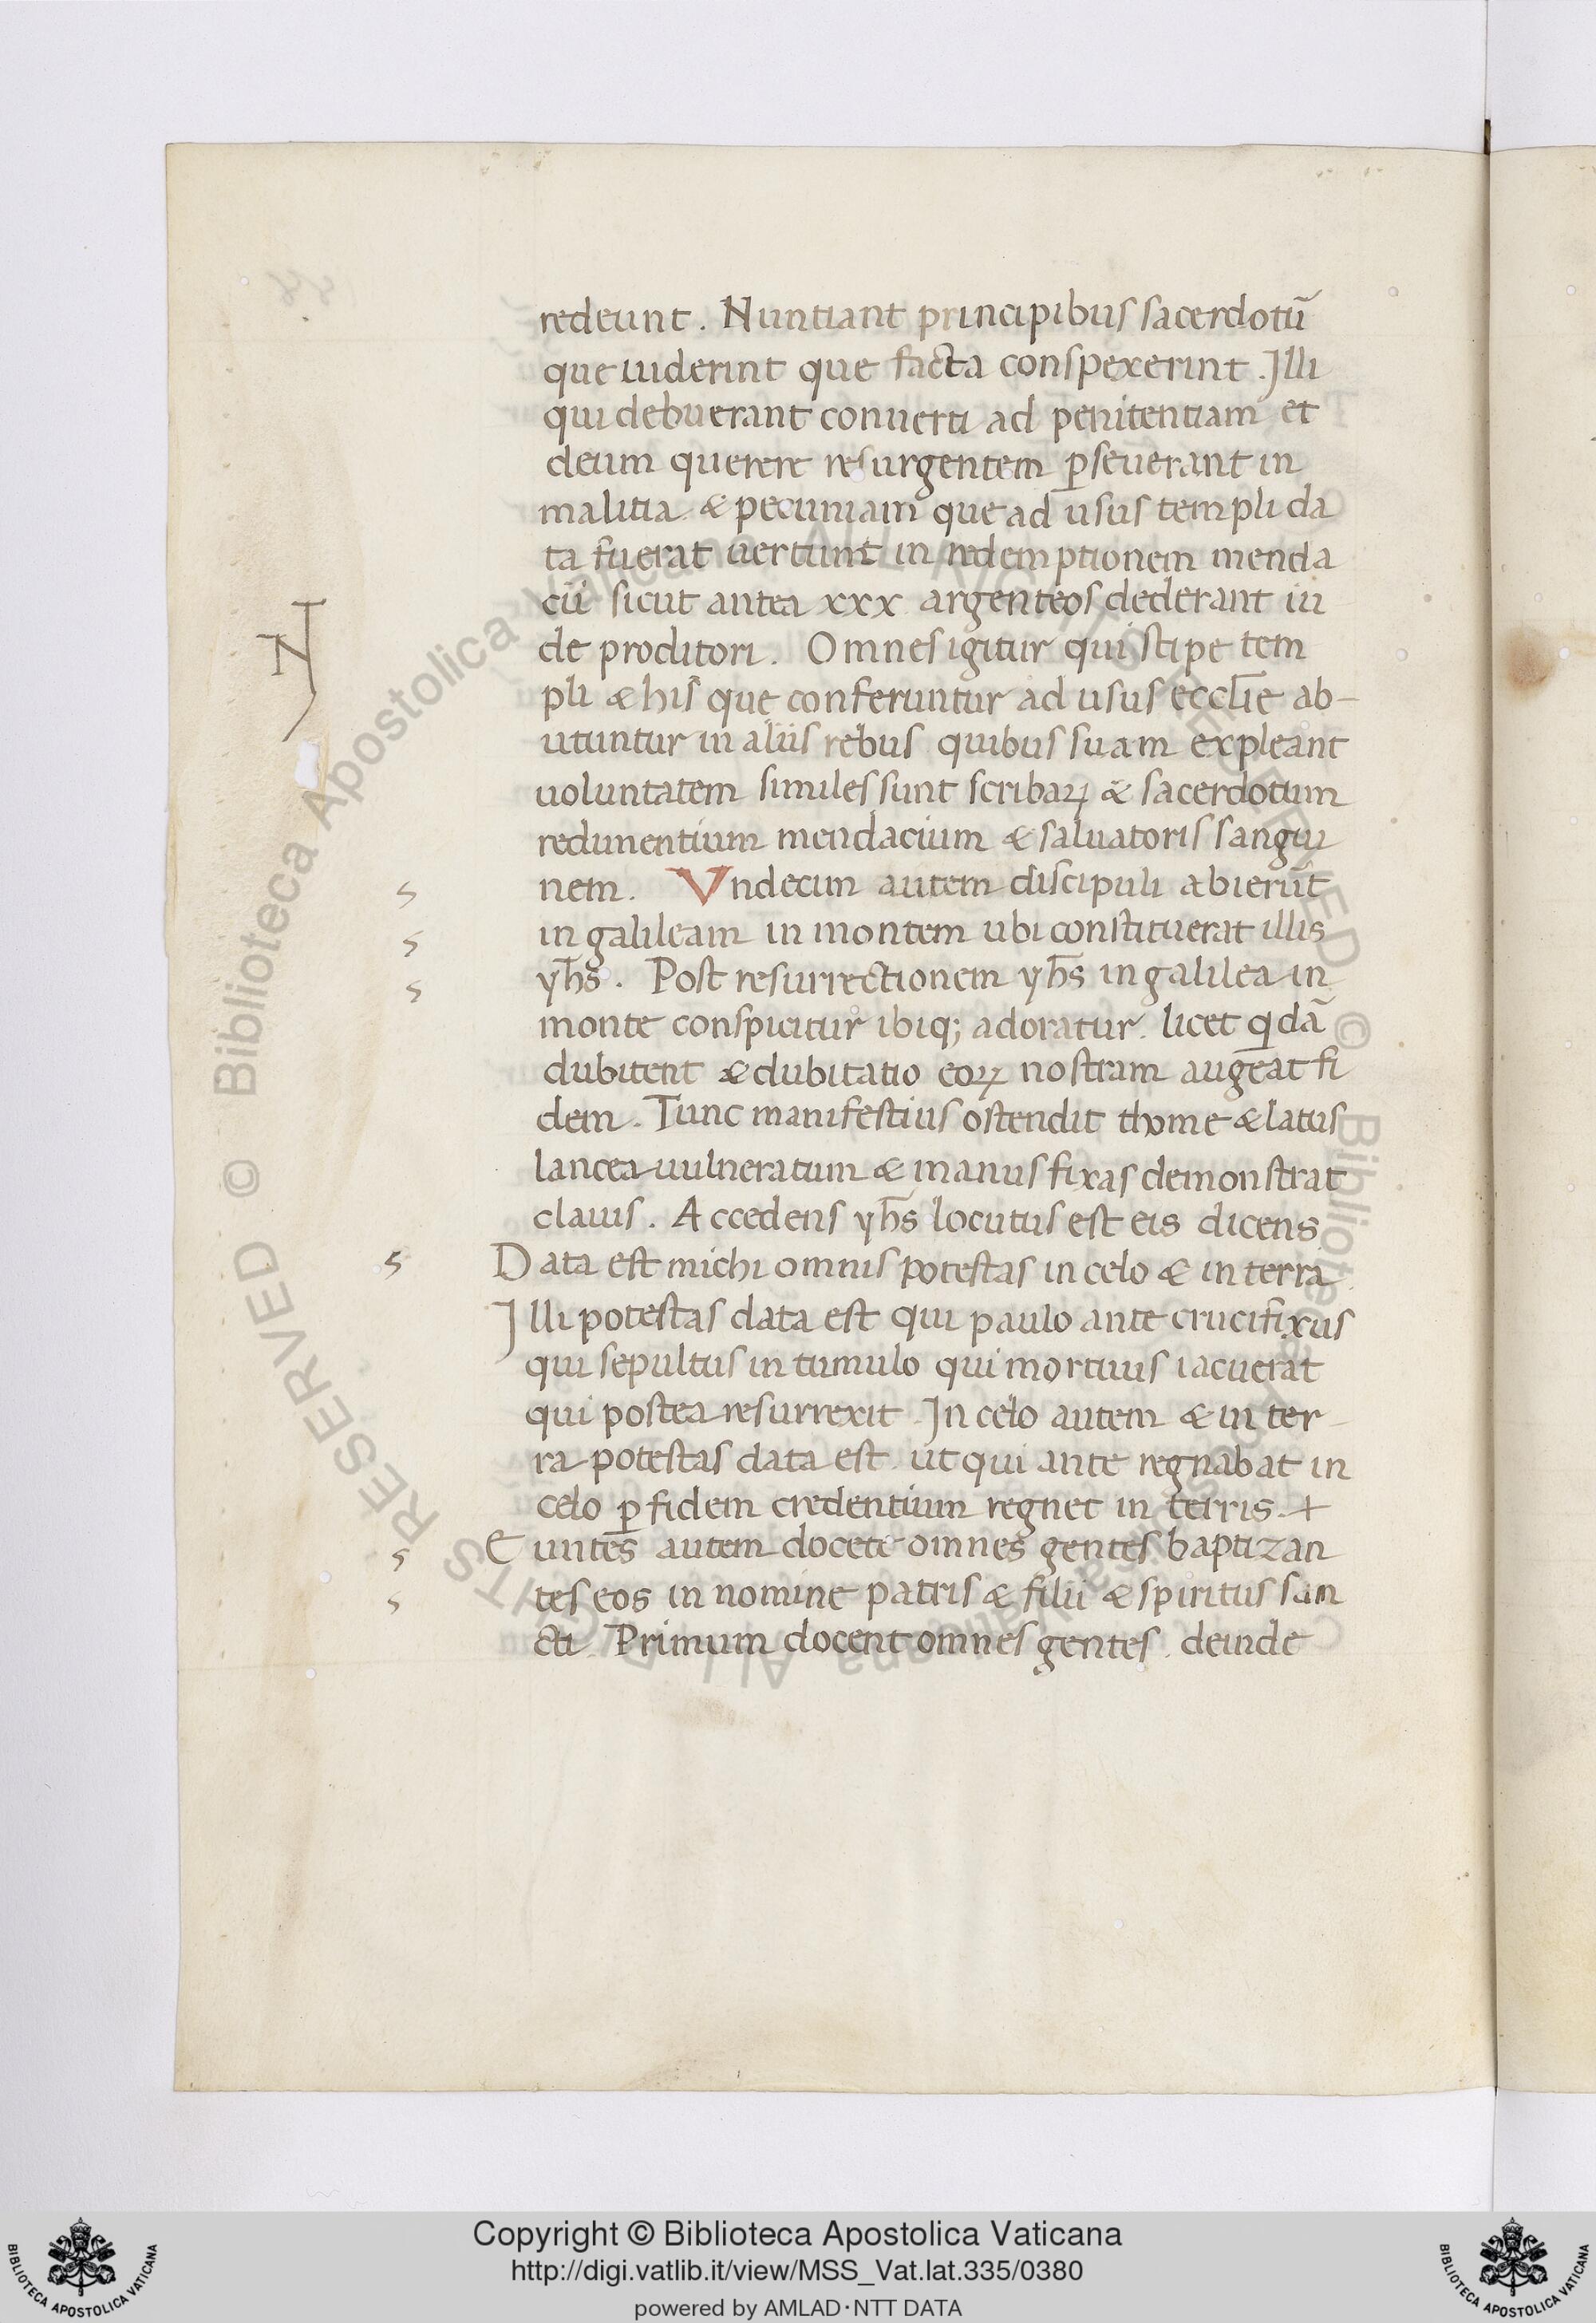 redeunt. Nuntiant principibus sacerdotũ
que uiderint que facta conspexerint. Illi
qui debuerant conuerti ad penitentiam et
deum querere resurgentem ꝑseuerant in
malitia & pecuniam que ad usus templi da
ta fuerat uertunt in redemptionem menda
cii sicut antea xxx argenteos dederant iu
de proditori. Omnes igitur qui stipe tem
pli & his que conferuntur ad usus eccl̄ie ab-
utuntur in aliis rebus quibus suam expleant
uoluntatem similes sunt scribaꝝ & sacerdotum
redimentium mendacium & saluatoris sangui
nem. Vndecim autem discipuli abierūt
in galileam in montem ubi constituerat illis
yh̄s. Post resurrectionem yh̄s in galilea in
monte conspicitur ibiq; adoratur. licet q̇dā
dubitent & dubitatio eoꝝ nostram augeat fi
dem. Tunc manifestius ostendit thome & latus
lancea uulneratum & manus fixas demonstrat
clauis. Accedens yh̄s locutus est eis dicens
Data est michi omnis potestas in celo & in terra
Illi potestas data est qui paulo ante crucifixus
qui sepultus in tumulo qui mortuus iacuerat
qui postea resurrexit. In celo autem & in ter-
ra potestas data est. ut qui ante regnabat in
celo ꝑ fidem credentium regnet in terris. +
Euntes autem docete omnes gentes baptizan
tes eos in nomine patris & filii & spiritus san
cti. Primum docent omnes gentes. deinde
Copyright © Biblioteca Apostolica Vaticana
http://digi.vatlib.it/view/MSS_Vat.lat.335/0380
powered by AMLAD·NTT DATA